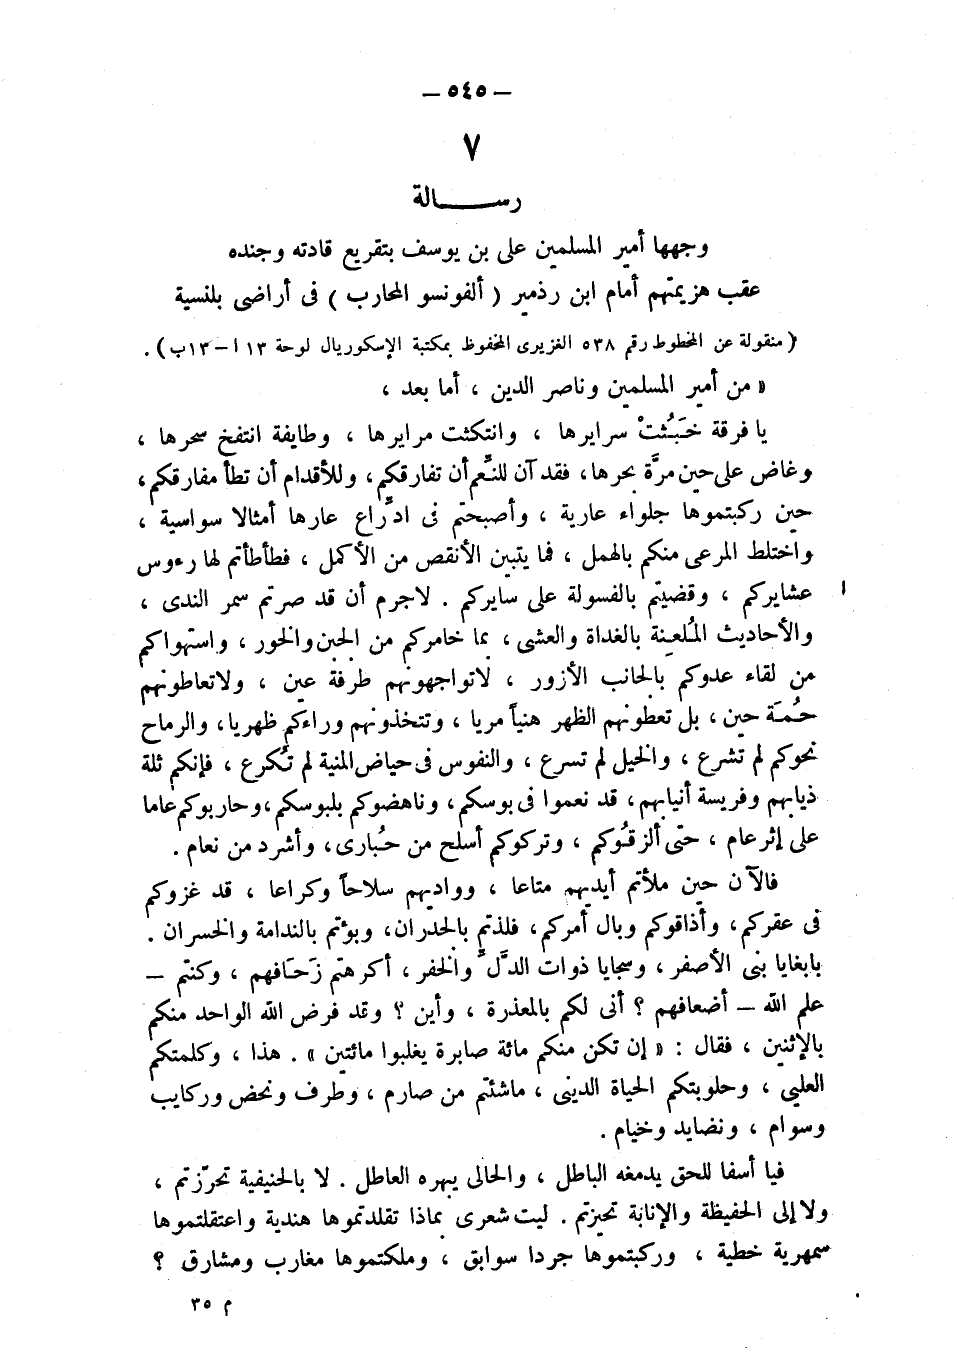 — ٥٤٥ —
٧
رســـــالة
وجهها أمير المسلمين على بن يوسف بتقريع قادته وجنده
عقب هزيمتهم أمام ابن رذمير ( ألفونسو المحارب ) فى أراضى بلنسية
( منقولة عن المخطوط رقم ٥٣٨ الغزيرى المحفوظ بمكتبة الإسكوريال لوحة ١٣ ا – ١٣ ب ) .
« من أمير المسلمين وناصر الدين ، أما بعد ،
يا فرقة خَبُثتْ سرايرها ، وانتكثت مرايرها ، وطايفة انتفخ سحرها ،
وغاض على حين مرَّة بحرها ، فقد آن للنِّعم أن تفارقكم ، وللأقدام أن تطأ مفارقكم ،
حين ركبتموها جلواء عارية ، وأصبحتم فى ادِّراع عارها أمثالا سواسية ،
واختلط المرعى منكم بالهمل ، فما يتبين الأنقص من الأكمل ، فطأطأتم لها رءوس
عشايركم ، وقضيتم بالفسولة على سايركم . لاجرم أن قد صرتم سمر الندى ،
والأحاديث المُلعِنة بالغداة والعشى ، بما خامركم من الجبن والخور ، واستهواكم
من لقاء عدوكم بالجانب الأزور ، لاتواجهونهم طرفة عين ، ولاتعاطونهم
حُمَة حين ، بل تعطونهم الظهر هنياً مريا ، وتتخذونهم وراءكم ظهريا ، والرماح
نحوكم لم تشرع ، والخيل لم تسرع ، والنفوس فى حياض المنية لم تُكرع ، فإنكم ثلة
ذيابهم وفريسة أنيابهم ، قد نعموا فى بوسكم ، وناهضوكم بلبوسكم ، وحاربوكم عاما
على إثر عام ، حتى ألزقُوكم ، وتركوكم أسلح من حُبارى ، وأشرد من نعام .
فالآن حين ملأتم أيديهم متاعا ، وواديهم سلاحاً وكراعا ، قد غزوكم
فى عقركم ، وأذاقوكم وبال أمركم ، فلذتم بالجدران ، وبؤتم بالندامة والخسران .
يابغايا بنى الأصفر ، وسجايا ذوات الدَّلِّ والخفر ، أكرهتم زَحَافهم ، وكنتم —
علم الله — أضعافهم ؟ أنى لكم بالمعذرة ، وأين ؟ وقد فرض الله الواحد منكم
بالإثنين ، فقال : « إن تكن منكم مائة صابرة يغلبوا مائتين » . هذا ، وكلمتكم
العليى ، وحلوبتكم الحياة الدينى ، ماشئتم من صارم ، وطرف ونحض وركايب
وسوام ، ونضايد وخيام .
فيا أسفا للحق يدمغه الباطل ، والحالى يبهره العاطل . لا بالحنيفية تحرّزتم ،
ولا إلى الحفيظة والإنابة تحيزتم . ليت شعرى بماذا تقلدتموها هندية واعتقلتموها
سمهرية خطية ، وركبتموها جردا سوابق ، وملكتموها مغارب ومشارق ؟
م ٣٥